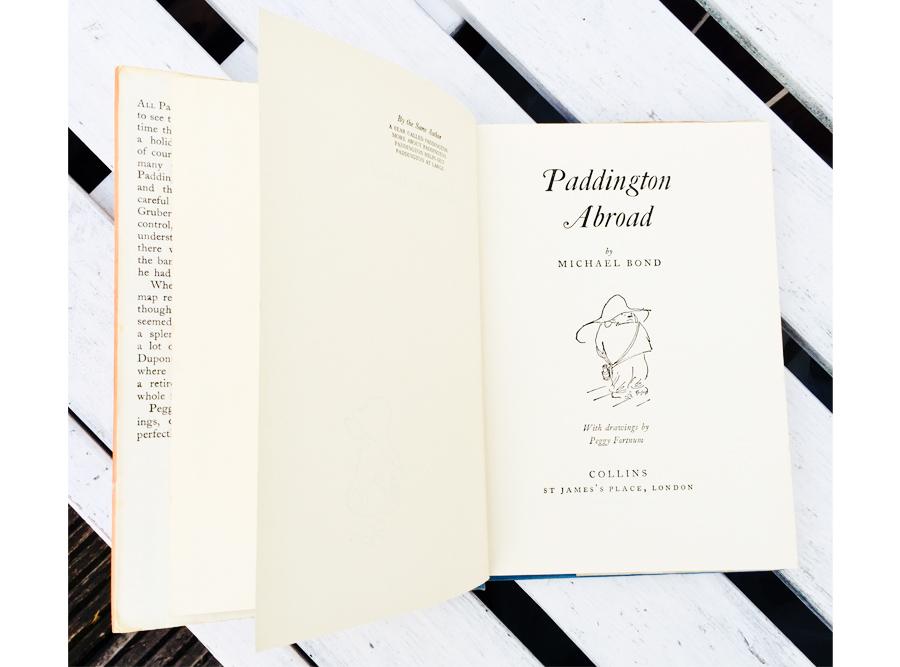 ALL Pa
to see t
time th
a holid
of cour
many
Paddin
and th
careful
Gruber
control,
underst
there v
the ban
he had
Whe
map re
though
seemed
a splen
a lot o
Dupon
where
a retire
whole
Pegg
ings,
perfectl
By the Same Author
A BEAR CALLED PADDINGTON
MORE ABOUT PADDINGTON
PADDINGTON HELPS OUT
PADDINGTON AT LARGE
Paddington
Abroad
by
MICHAEL BOND
With drawings by
Peggy Fortnum
COLLINS
ST JAMES'S PLACE, LONDON